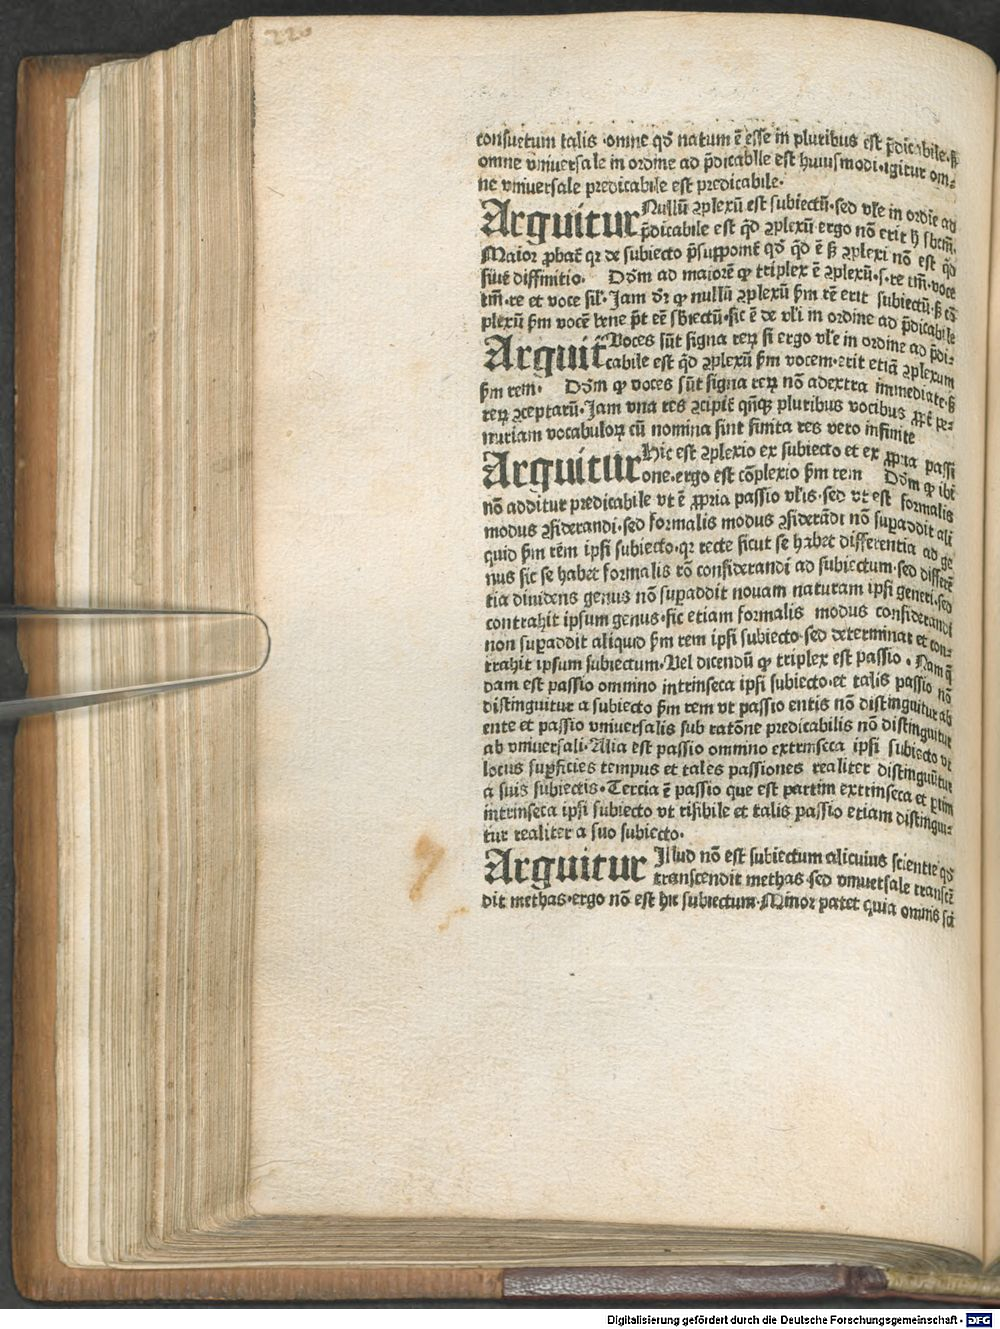 220
consuetum talis ·omne qď natum ē esse in pluribus est p̄dicabile·ſꝫ
omne vniuersale in ordine ad p̄dicabile est huiusmodi·igitur om⸗
ne vniuersale predicabile est predicabile·
Arguitur Nullū ꝯplexū est subiectū·sed vľe in ordīe ad
p̄dicabile est qď ꝯplexū ergo nō erit ḥ sbctm̄·
Maior ꝓbat̄ qꝛ de subiecto p̄supponit̄ qď qď ē ſꝫ ꝯplexi nō est qď
siue diffinitio· Dōm ad maiorē ꝙ triplex ē ꝯplexū·s·re tm̄·voce
tm̄·re et voce sil'·Jam dr̄ ꝙ nullū ꝯplexū ẜm rē erit subiectū·ſꝫ cō
plexū ẜm vocē bene p̄t eē sb̄iectū·sic ē de vľi in ordine ad p̄dicabile
Arguit̄ Voces sūt signa reꝝ si ergo vľe in ordine ad p̄di⸗
cabile est qď ꝯplexū ẜm vocem·erit etiā ꝯplexum
ẜm rem· Dōm ꝙ voces sūt signa reꝝ nō adextra immediate·ſꝫ
reꝝ ꝯceptarū·Jam vna res ꝯcipit̄ qn̄qꝫ pluribus vocibus ꝓpt̄ pe⸗
nuriam vocabuloꝝ cū nomina sint finita res vero infinite
Arguitur Hic est ꝯplexio ex subiecto et ex ꝓpria passi
one·ergo est cōplexio ẜm rem Dōm ꝙ ibi
nō additur predicabile vt ē ꝓpria passio vľis·sed vt est formalis
modus ꝯsiderandi·sed formalis modus ꝯsiderādi nō suꝑaddit ali
quid ẜm rēm ipsi subiecto·qꝛ recte sicut se habet differentia ad ge
nus sic se habet formalis rō considerandi ad subiectum·sed differē
tia diuidens genus nō suꝑaddit nouam naturam ipsi generi·sed
contrahit ipsum genus·sic etiam formalis modus considerandi
non suꝑaddit aliquid ẜm rem ipsi subiecto·sed determinat et con⸗
trahit ipsum subiectum·Vel dicendū ꝙ triplex est passio·Nam q̄
dam est passio omnino intrinseca ipsi subiecto·et talis passio nō
distinguitur a subiecto ẜm rem vt passio entis nō distinguitur ab
ente et passio vniuersalis sub ratōne predicabilis nō distinguitur
ab vniuersali·Alia est passio omnino extrinseca ipsi subiecto vt
locus suꝑficies tempus et tales passiones realiter distinguūtur
a suis subiectis·Tercia ē passio que est partim extrinseca et ꝑtim
intrinseca ipsi subiecto vt risibile et talis passio etiam distingui⸗
tur realiter a suo subiecto·
Arguitur Illud nō est subiectum alicuius scientie qď
transcendit methas·sed vniuersale transcē
dit methas·ergo nō est hic subiectum·Minor patet quia omnis sci
Digitalisierung gefördert durch die Deutsche Forschungsgemeinschaft - DFG